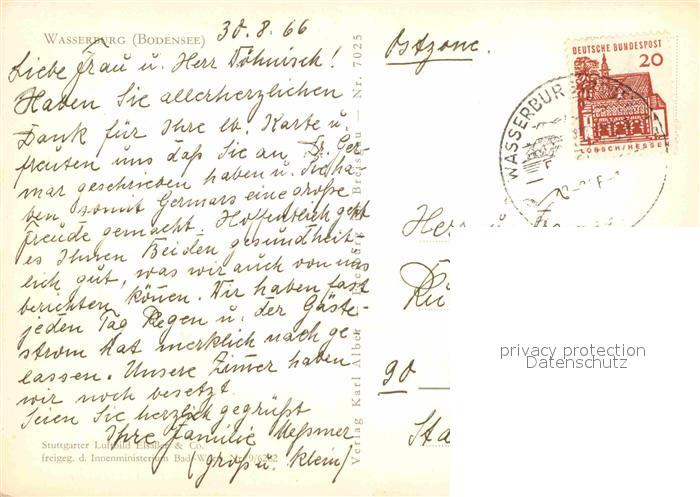 WASSERBURG (BODENSEE) 30.8.66
Liebe Frau u. Herr Döhnisch!
Haben Sie allerherzlichen
Dank für Ihre lb. Karte u.
freuten uns daß Sie an Dr. Ger-
mar geschrieben haben u. Sie ha-
ben, somit Germars eine große
Freude gemacht. Hoffentlich geht
es Ihnen Beiden gesundheit-
lich gut, was wir auch von uns
berichten können. Wir haben fast
jeden Tag Regen u. der Gäste-
strom hat merklich nach ge
lassen. Unsere Zimmer haben
wir noch besetzt.
Seien Sie herzlich gegrüßt
Ihre Familie Meßmer
(groß u. klein)
Stuttgarter Luftbild Elsäßer & Co.
freigeg. d. Innenministerium Bad. Nr. 9/6282
Verlag Karl Alber Breisgau — Nr. 7025
Ostzone.
DEUTSCHE BUNDESPOST
20
LORSCH/HESSEN
WASSERBURG
Herr u.
90
privacy protection
Datenschutz